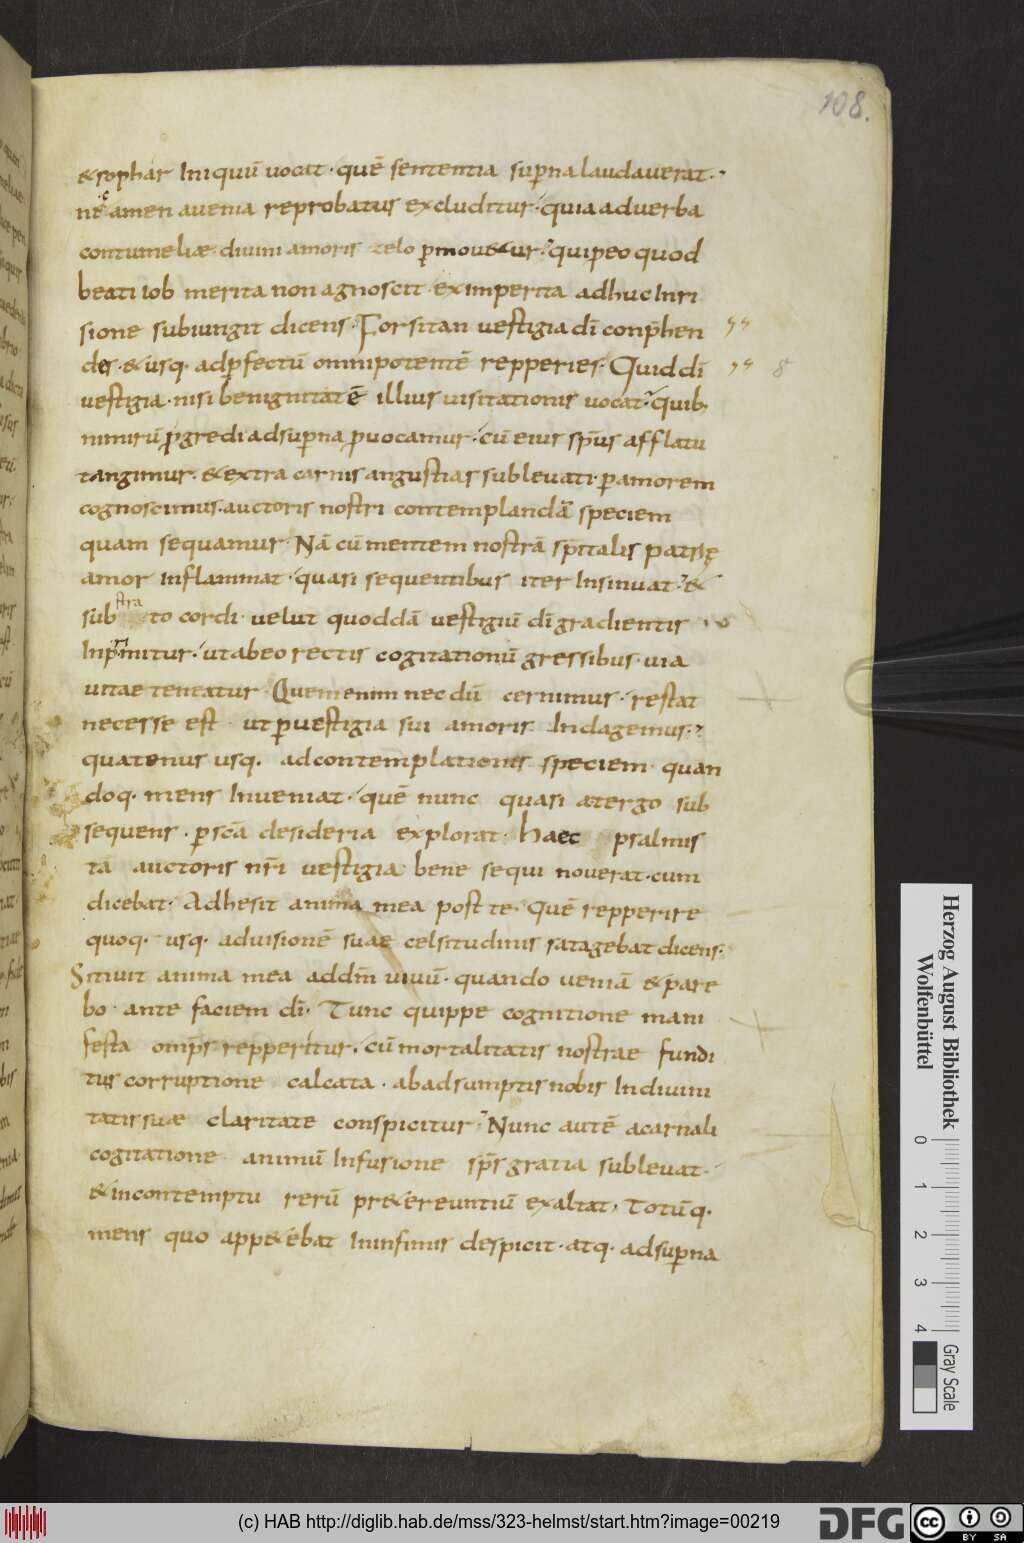 108.
& sophar Iniquū uocat · quē sententia sup̲na laudauerat ·
nec tamen a uenia reprobatus excluditur · quia ad uerba
contumeliæ diuini amoris zelo p̲mou&ur · qui p̲ eo quod
beati iob merita non agnoscit · ex imperitia adhuc Inri
sione subiungit dicens · Forsitan uestigia dī conp̄hen
des · & usq· ad p̲fectū omnipotentē repperies · Quid dī
8
uestigia · nisi benignitatē illius uisitationis uocat · quib·
nimirū p̲gredi ad sup̲na p̲uocamur · cū eius sp̄us afflatu
tangimur · & extra carnis angustias subleuati · p̲ amorem
cognoscimus · auctoris nostri contemplandā speciem
quam sequamur · Nā cū mentem nostrā sp̄italis patrię
amor Inflammat · quasi sequentibus iter Insinuat · &
substrato cordi · uelut quoddā uestigiū dī gradientis
Inp̄mitur · ut ab eo rectis cogitationū gressibus · uia
uitae teneatur · Quem enim necdū cernimus · restat
necesse est · ut p̲ uestigia sui amoris Indagemus ·
quatenus usq· ad contemplationis speciem · quan
doq· mens Inueniat · quē nunc quasi a tergo sub
sequens · p̲ scā desideria explorat · Haec psalmis
ta auctoris nr̄i uestigia bene sequi nouerat · cum
dicebat · Adhesit anima mea post te · Quē repperire
quoq· usq· ad uisionē suae celsitudinis satagebat dicens ·
Sitiuit anima mea ad dm̄ uiuū · quando ueniā & pare
bo · ante faciem dī · Tunc quippe cognitione mani
festa omp̄s repperitur · cū mortalitatis nostrae fundi
tus corruptione calcata · ab adsumptis nobis In diuini
tatis suæ claritate conspicitur · Nunc autē a carnali
cogitatione animū Infusione sp̄s gratia subleuat ·
& in contemptu rerū pr&ereuntiū exaltat · Totūq·
mens quo app&ebat In infimis despicit · atq· ad sup̲na
Herzog August Bibliothek
Wolfenbüttel
0 1 2 3 4
Gray Scale
(c) HAB http://diglib.hab.de/mss/323-helmst/start.htm?image=00219
DFG
cc BY SA